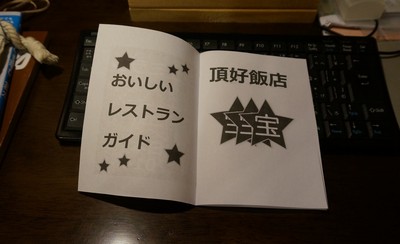 おいしい
レストラン
ガイド
頂好飯店
宝